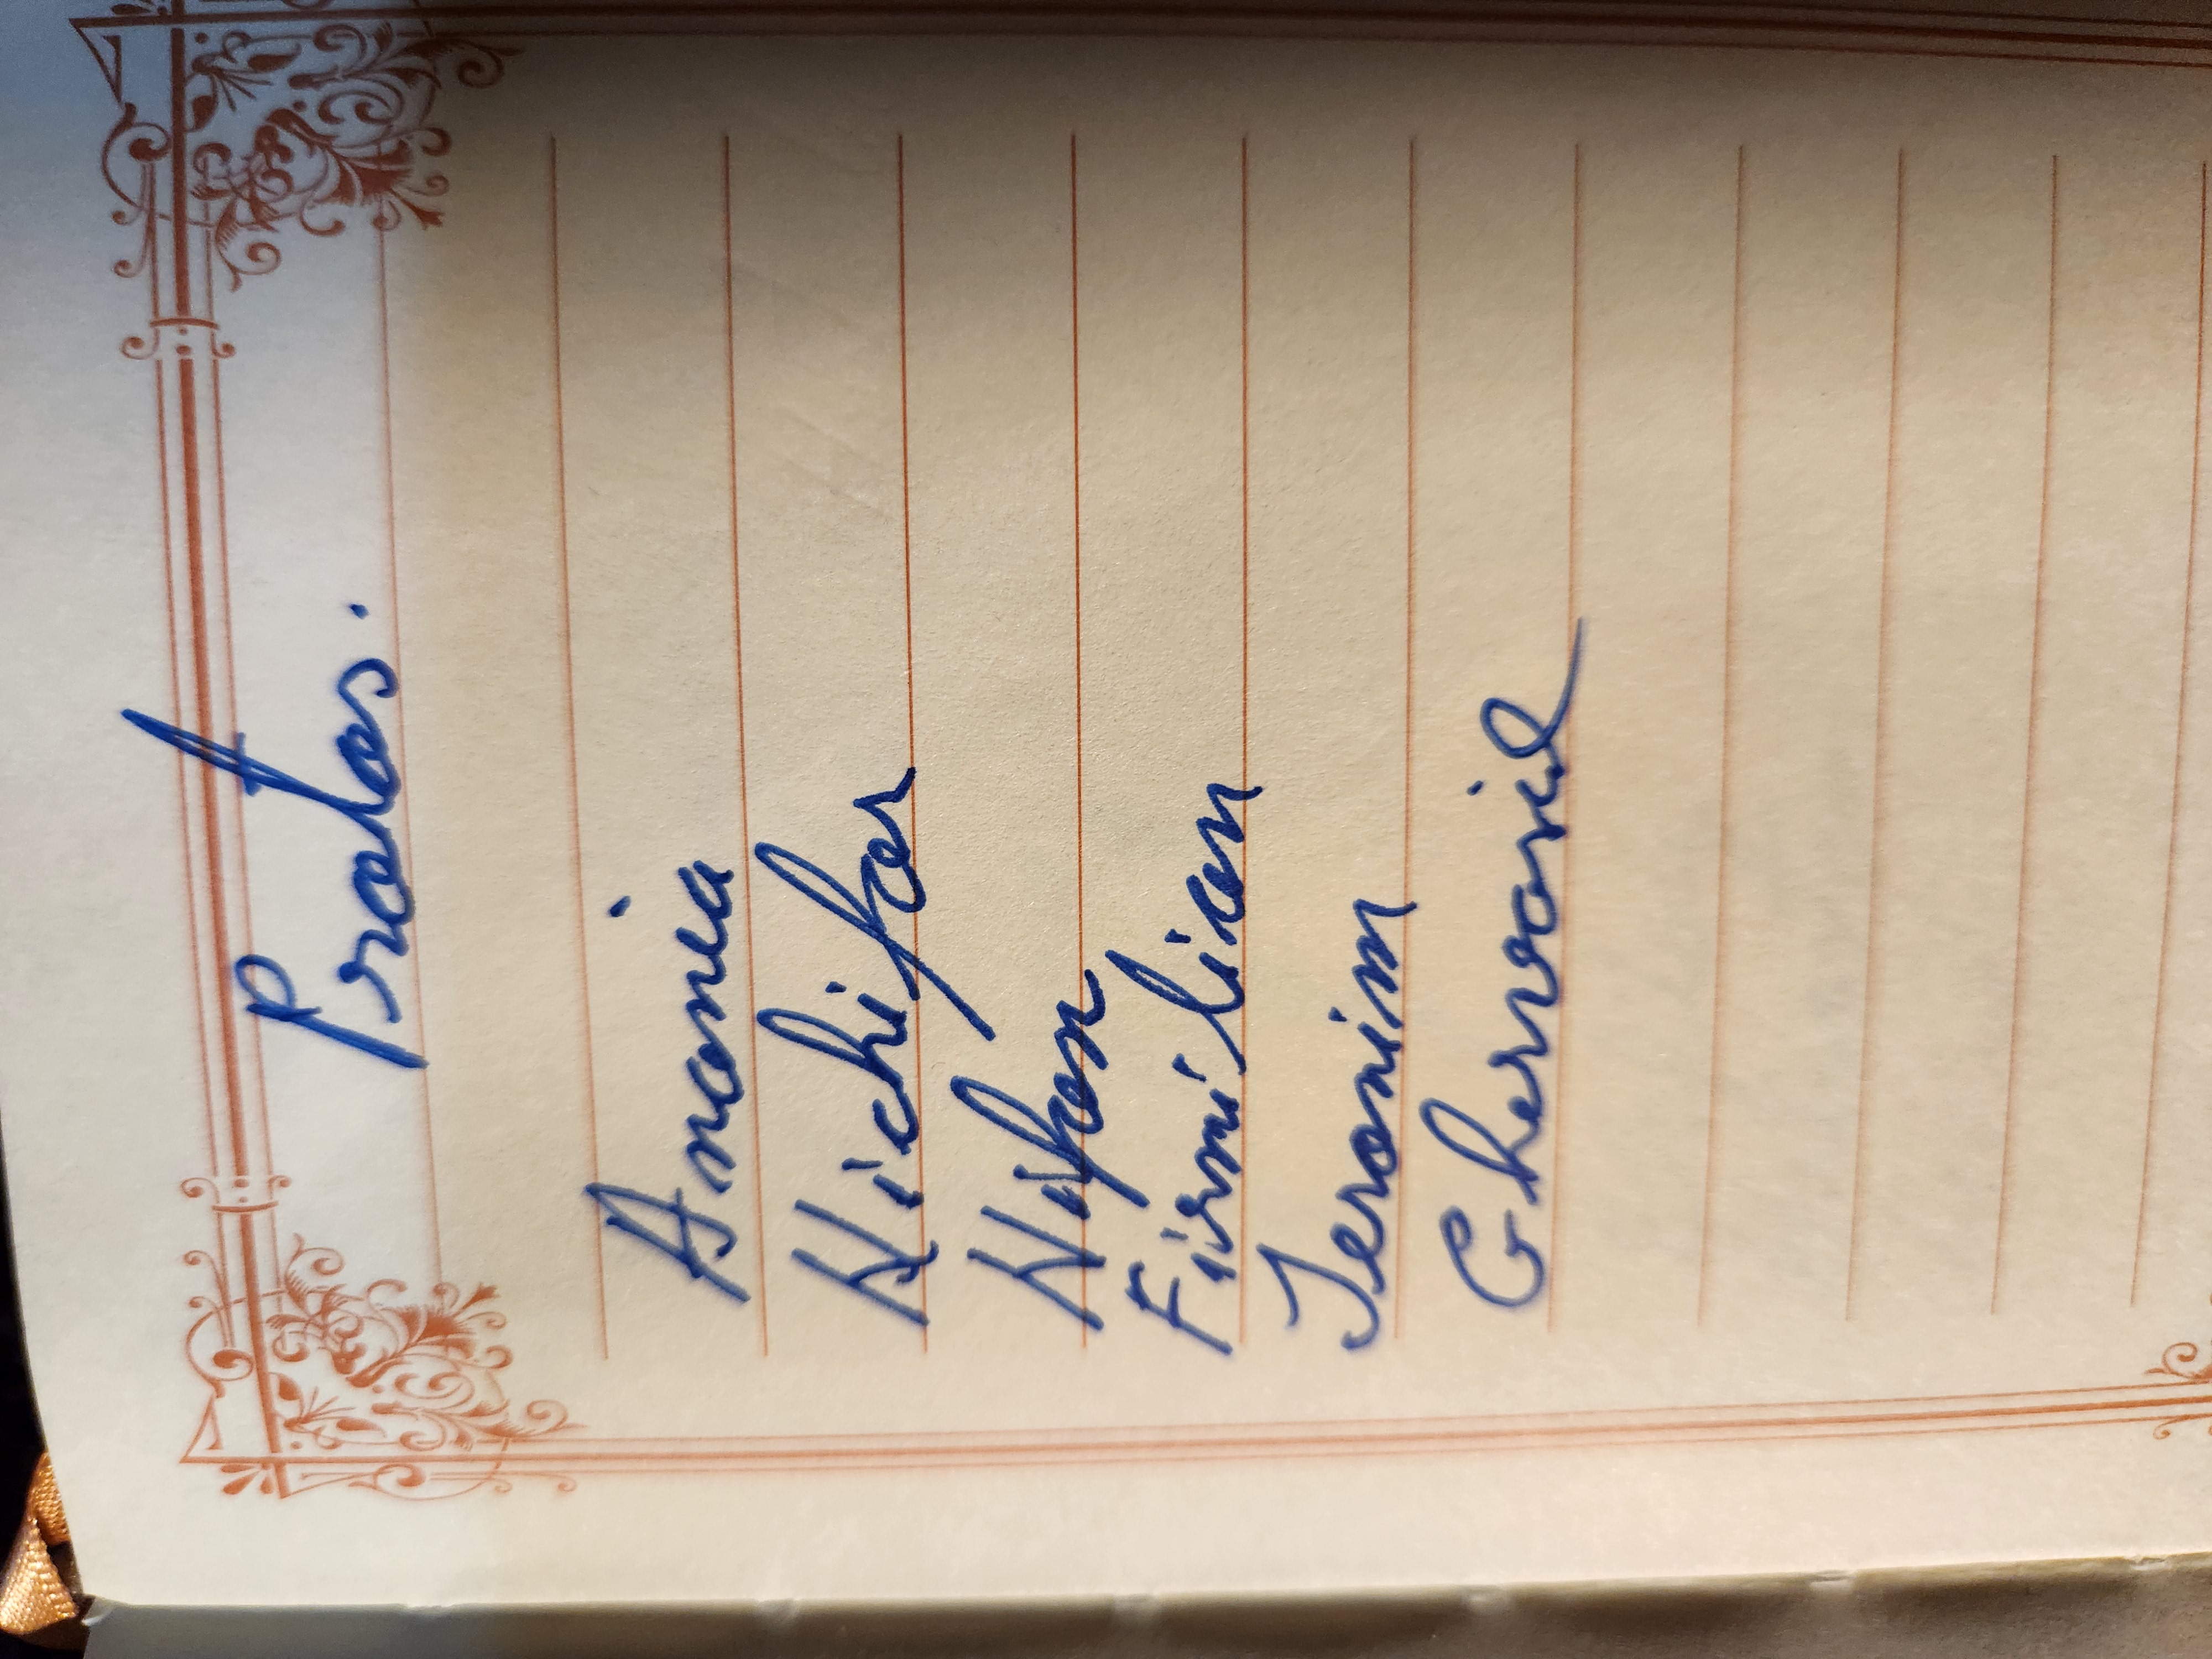 Protos.
Anania
Nichifor
Nifon
Firmilian
Ieronim
Ghervasie